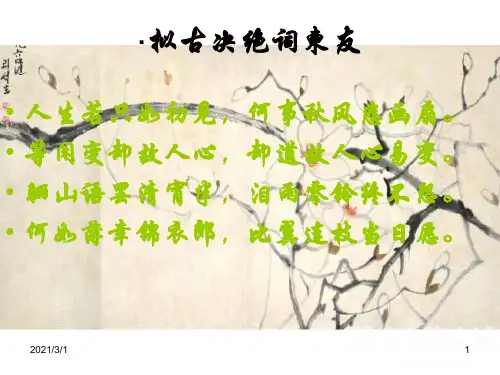 ·拟古决绝词柬友
• 人生若只如初见,何事秋风悲画扇。
• 等闲变却故人心,却道故人心易变。
• 骊山语罢清宵半,泪雨零铃终不怨。
• 何如薄幸锦衣郎,比翼连枝当日愿。
2021/3/1
1